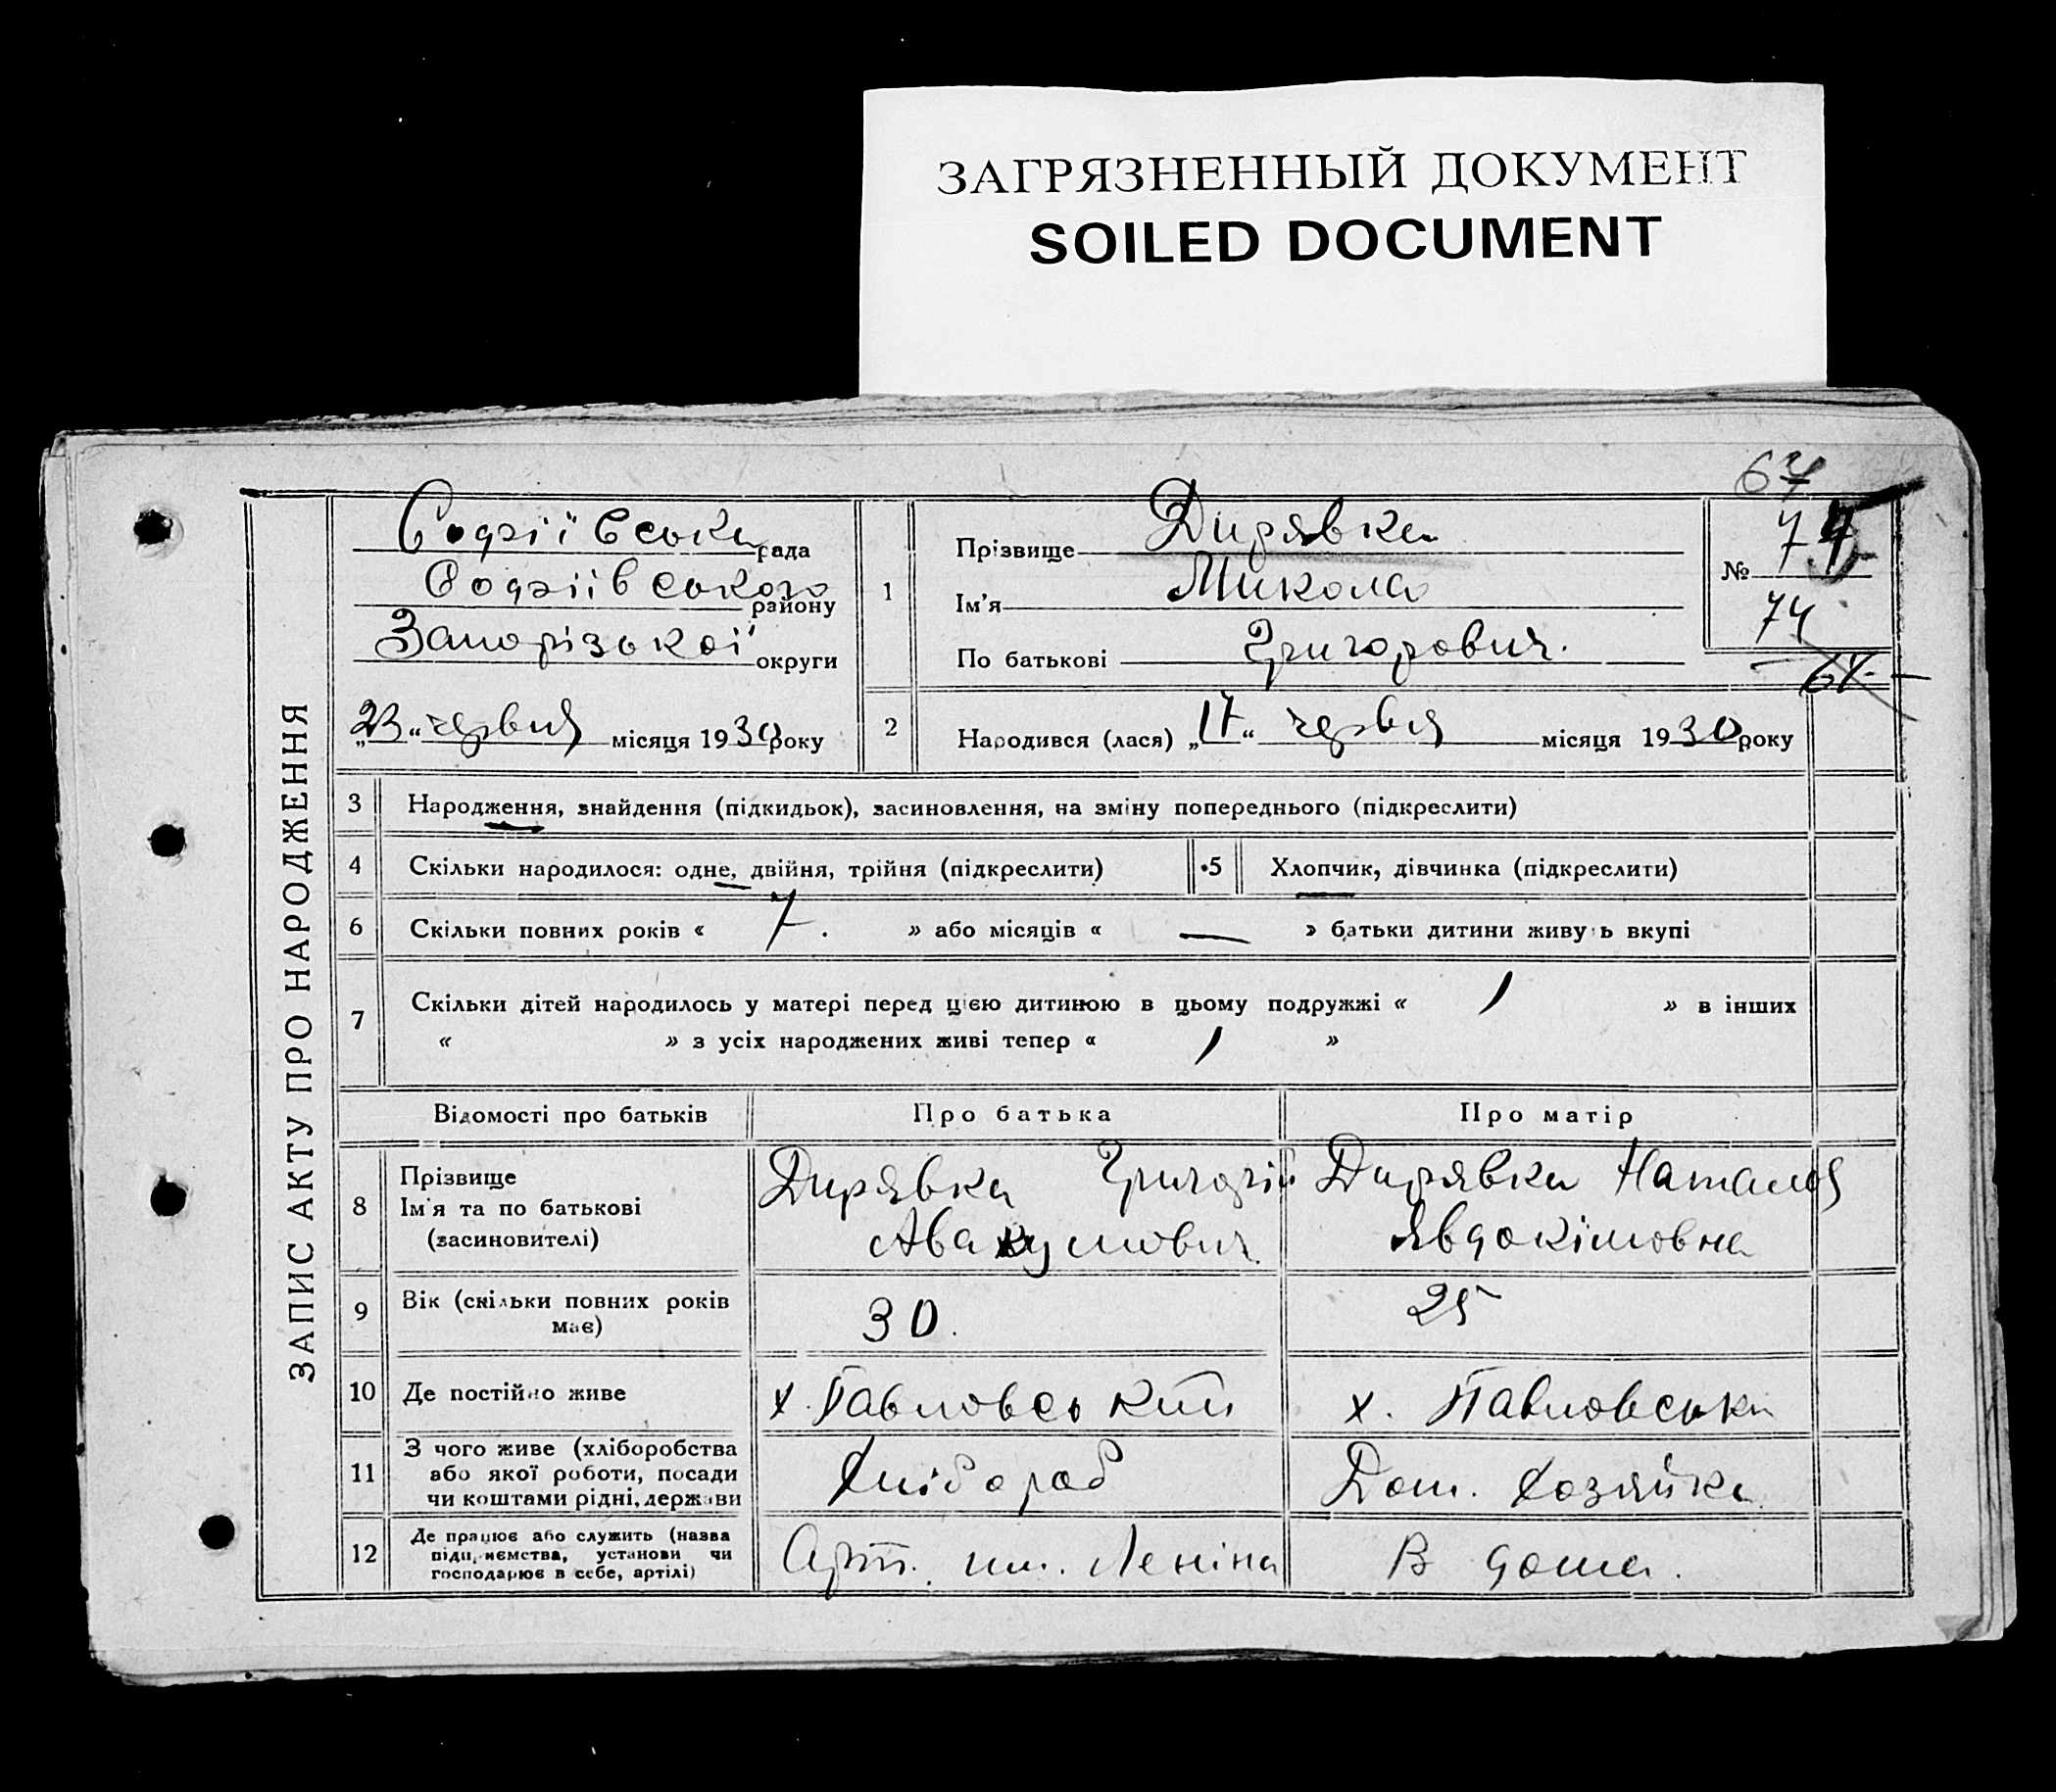 ЗАГРЯЗНЕННЫЙ ДОКУМЕНТ
SOILED DOCUMENT
ЗАПИС АКТУ ПРО НАРОДЖЕННЯ
Софіївська рада
Софіївського району
Запорізької округи
„23“ червня місяця 1930 року
1
Прізвище Дирявка
Ім'я Микола
По батькові Григорович.
№ 74
74
2 Народився (лася) „17“ червня місяця 1930 року
3 Народження, знайдення (підкидьок), засиновлення, на зміну попереднього (підкреслити)
4 Скільки народилося: одне, двійня, трійня (підкреслити) 5 Хлопчик, дівчинка (підкреслити)
6 Скільки повних років « 7. » або місяців « — » батьки дитини живуть вкупі
7 Скільки дітей народилось у матері перед цією дитиною в цьому подружжі « 1 » в інших
« » з усіх народжених живі тепер « 1 »
Відомості про батьків Про батька Про матір
8 Прізвище
Ім'я та по батькові
(засиновителі)
Дирявка Григорій
Авакумович
Дирявка Наталія
Явдокімовна
9 Вік (скільки повних років
має)
30.
25
10 Де постійно живе х. Павловський х. Павловськи
11 З чого живе (хліборобства
або якої роботи, посади
чи коштами рідні, держави
Хлібораб
Дом. Хозяйка
12 Де працює або служить (назва
підприємства, установи чи
господарює в себе, артілі)
Арт. им. Леніна
В дома.